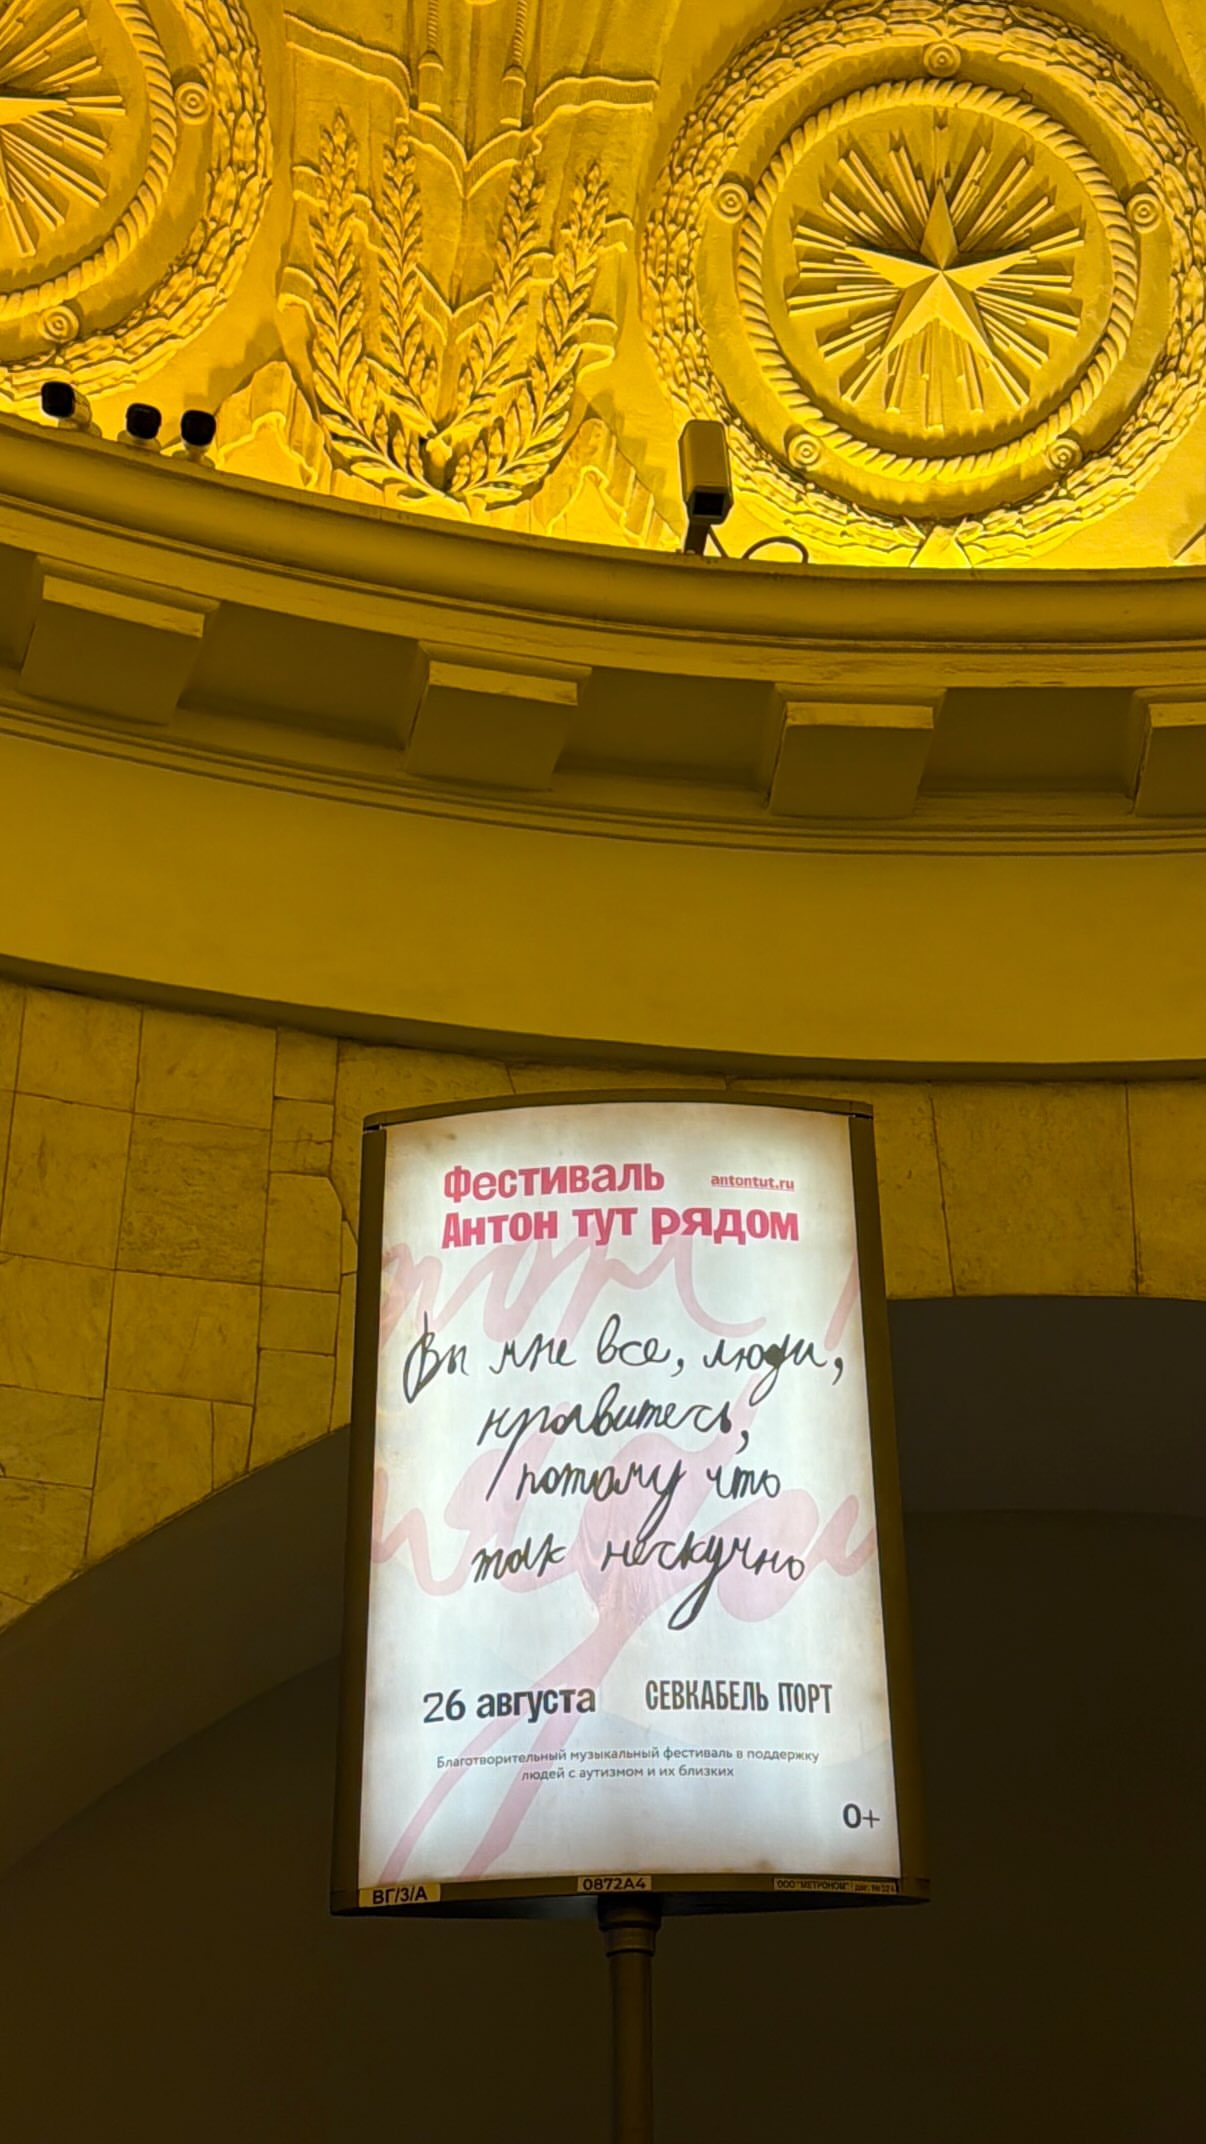 Фестиваль
antontut.ru
Антон тут рядом
Вы мне все, люди,
нравитесь,
потому что
так нескучно
26 августа
СЕВКАБЕЛЬ ПОРТ
Благотворительный музыкальный фестиваль в поддержку
людей с аутизмом и их близких
0+
ВГ/3/А
0872А4
ООО "МЕТРОНОМ"